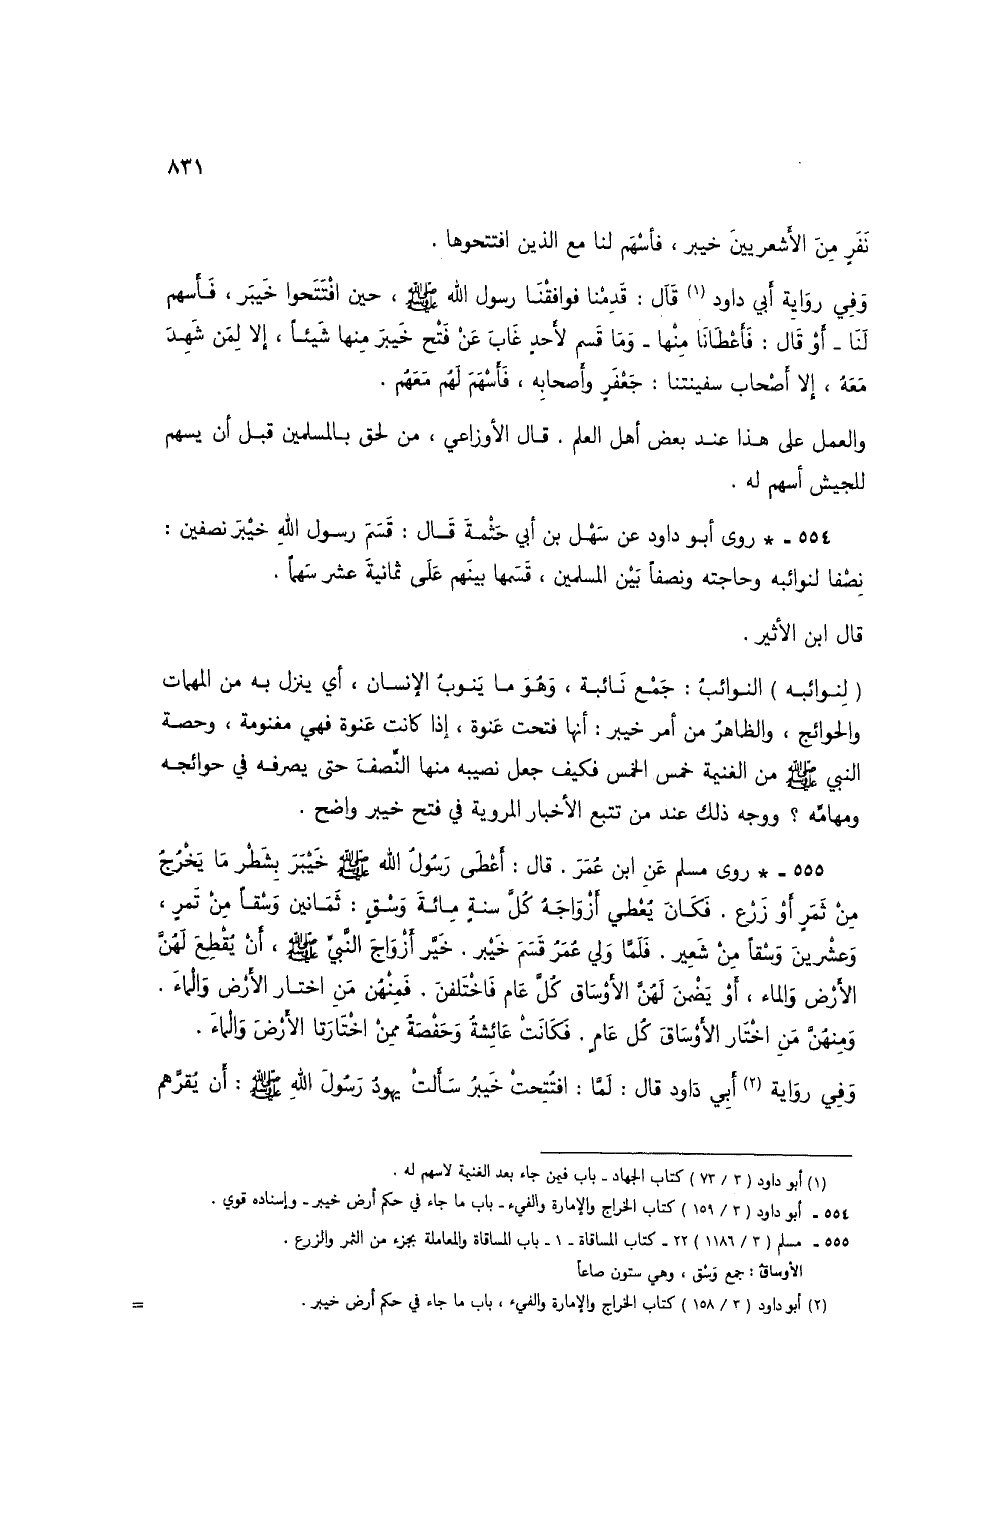 ٨٣١
نَفَرٍ مِنَ الأَشعريينَ خيبر ، فأسْهَم لنا مع الذين افتتحوها .
وَفِي روَاية أَبي داود (١) قَال : قَدِمْنا فوافقْنَا رسول الله ﷺ ، حين افْتَتَحوا خَيبَر ، فَأَسهم
لَنَا ـ أَوْ قَال : فَأَعْطَانَا مِنْها ـ وَمَا قَسم لأحدٍ غَابَ عَنْ فَتْح خَيبرَ مِنها شَيئاً ، إلا لِمَن شَهِدَ
مَعَهُ ، إلا أَصْحاب سفينتنا : جَعْفَرٍ وأَصحابِه ، فَأَسْهَمَ لَهُم مَعَهُم .
والعمل على هذا عند بعض أهل العلم . قال الأوزاعي ، من لحق بالمسلمين قبل أن يسهم
للجيش أسهم له .
٥٥٤ ـ * روى أبو داود عن سَهْل بن أبي حَثْمةَ قَال : قَسَمَ رسول اللهِ خيْبَرَ نصفين :
نِصْفا لنوائبه وحاجته ونصفاً بَيْن المسلمين ، قَسَمها بينَهم عَلَى ثمانيةَ عشر سَهماً .
قال ابن الأثير .
( لِنوائبه ) النوائبُ : جَمْع نَائبة ، وَهُوَ ما يَنوبُ الإنسان ، أي ينزل به من المهمات
والحوائج ، والظاهرُ من أمر خيبر : أنها فتحت عَنوة ، إذا كانت عَنوة فهي مغنومة ، وحصة
النبي ﷺ من الغنيمة خمس الخمس فكيف جعل نصيبه منها النِّصفَ حتى يصرفه في حوائجه
ومهامَّه ؟ ووجه ذلك عند من تتبع الأخبار المروية في فتح خيبر واضح .
٥٥٥ ـ * روى مسلم عَنِ ابن عُمَرَ . قال : أَعْطَى رَسُولُ الله ﷺ خَيْبَرَ بِشَطْرِ مَا يَخْرُجُ
مِنْ ثَمَرٍ أَوْ زَرْع . فَكَانَ يُعْطي أَزْوَاجَهُ كُلَّ سنةٍ مِائةَ وَسْقٍ : ثَمَانين وَسْقاً مِنْ تَمرٍ ،
وَعشْرينَ وَسْقاً مِنْ شَعيرٍ . فَلَمَّا وَلي عُمَرُ قَسَمَ خَيْبر . خَيَّر أَزْوَاجَ النَّبيِّ ﷺ ، أَنْ يُقْطِعَ لَهُنَّ
الأَرْضَ وَالماء ، أَوْ يَضْمنَ لَهُنَّ الأَوْسَاق كُلَّ عَام فَاخْتَلفنَ . فَمِنْهُن مَنِ اختار الأَرْضَ وَالْماءَ .
وَمِنهُنَّ مَنِ اخْتَار الأَوْسَاقَ كُل عَامٍ . فَكَانَتْ عَائِشةُ وَحَفْصَةُ ممِنْ اخْتَارَتا الأَرْضَ وَالْماءَ .
وَفِي روَاية (٢) أَبِي دَاود قال : لَمَّا : افتُتِحتْ خَيبرُ سَأَلتْ يهودُ رَسُولَ اللهِ ﷺ : أَن يُقرَّهم
(١) أبو داود ( ٣ / ٧٣ ) كتاب الجهاد ـ باب فيمن جاء بعد الغنيمة لاسهم له .
٥٥٤ ـ أبو داود ( ٣ / ١٥٩ ) كتاب الخراج والإمارة والفيء ـ باب ما جاء في حكم أرض خيبر ـ وإسناده قوي .
٥٥٥ ـ مسلم ( ٣ / ١١٨٦ ) ٢٢ ـ كتاب المساقاة ـ ١ ـ باب المساقاة والمعاملة بجزء من الثمر والزرع .
الأوساقُ : جمع وَسْق ، وهي ستون صاعاً
(٢) أبو داود ( ٣ / ١٥٨ ) كتاب الخراج والإمارة والفيء ، باب ما جاء في حكم أرض خيبر . =